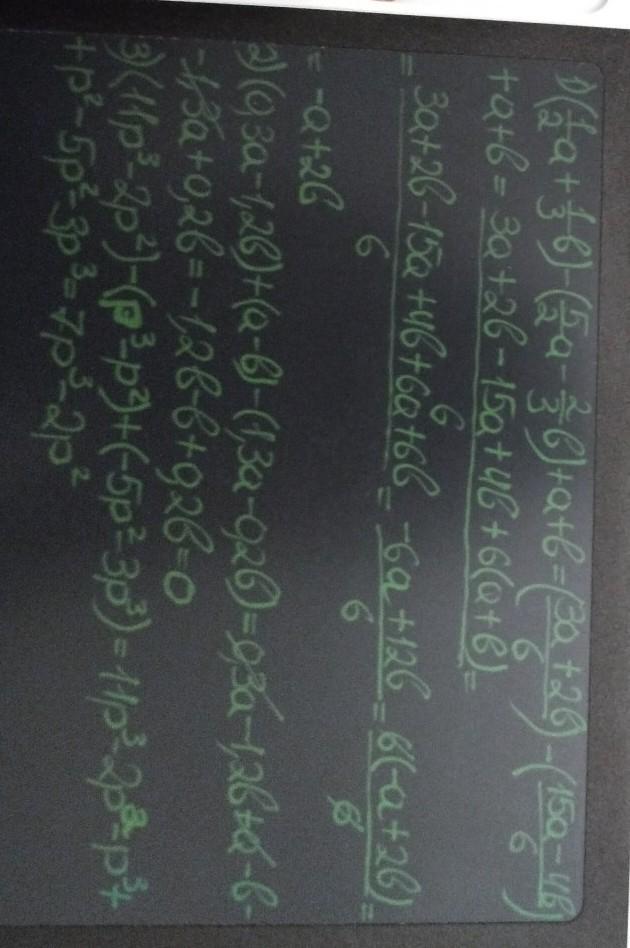 1) (1/2 a + 1/3 b) - (5/2 a - 2/3 b) + a + b = (3a + 2b / 6) - (15a - 4b / 6)
+ a + b = 3a + 2b - 15a + 4b + 6(a + b) / 6 =
= 3a + 2b - 15a + 4b + 6a + 6b / 6 = -6a + 12b / 6 = 6(-a + 2b) / 6 =
= -a + 2b
2) (0,3a - 1,2b) + (a - b) - (1,3a - 0,2b) = 0,3a - 1,2b + a - b -
- 1,3a + 0,2b = - 1,2b - b + 0,2b = 0
3) (11p³ - 2p²) - (p³ - p²) + (-5p² - 3p³) = 11p³ - 2p² - p³ +
+ p² - 5p² - 3p³ = 7p³ - 2p²